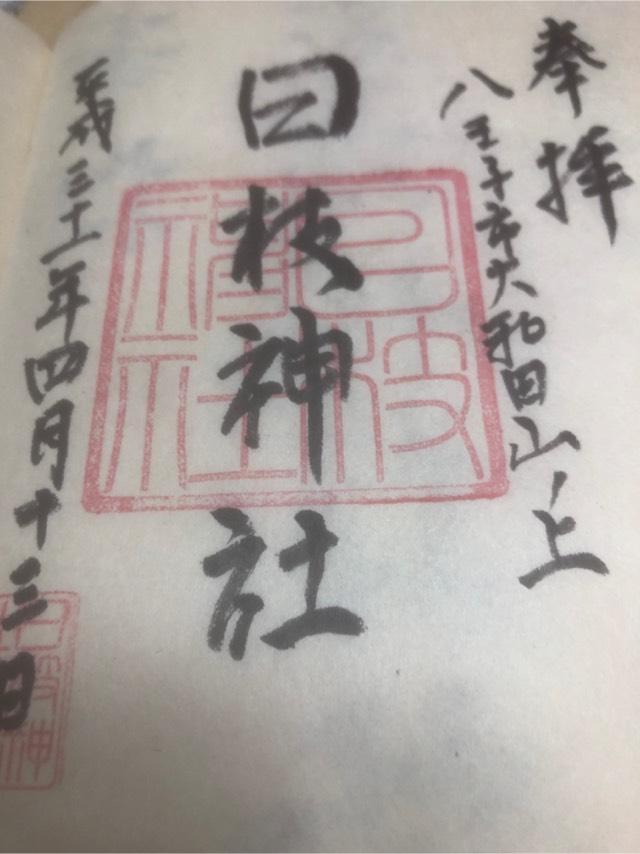 奉拝
八王子市大和田山ノ上
日枝神社
平成三十一年四月十三日
日枝神社